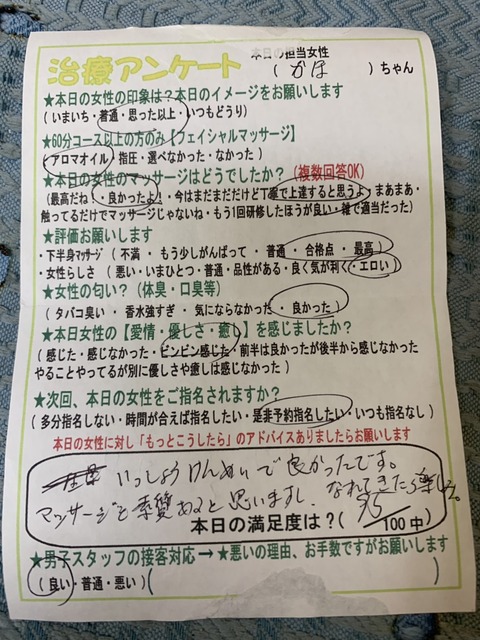 治療アンケート
本日の担当女性
( かほ )ちゃん
★本日の女性の印象は？本日のイメージをお願いします
(いまいち・普通・思った以上・いつもどうり)
★60分コース以上の方のみ【フェイシャルマッサージ】
(アロマオイル・指圧・選べなかった・なかった)
★本日の女性のマッサージはどうでしたか？(複数回答OK)
(最高だね・良かったよ!・今はまだまだだけど丁寧で上達すると思うよ・まあまあ・
触ってるだけでマッサージじゃないね・もう1回研修したほうが良い・雑で適当だった)
★評価お願いします
・下半身マッサージ(不満・もう少しがんばって・普通・合格点・最高)
・女性らしさ(悪い・いまひとつ・普通・品性がある・良く気が利く・エロい)
★女性の匂い？(体臭・口臭等)
(タバコ臭い・香水強すぎ・気にならなかった・良かった)
★本日女性の【愛情・優しさ・癒し】を感じましたか？
(感じた・感じなかった・ビンビン感じた・前半は良かったが後半から感じなかった
やることやってるが別に優しさや癒しは感じなかった)
★次回、本日の女性をご指名されますか？
(多分指名しない・時間が合えば指名したい・是非予約指名したい・いつも指名なし)
本日の女性に対し「もっとこうしたら」のアドバイスありましたらお願いします
いっしょうけんめいで良かったです。
マッサージも素質あると思います。なれてきたら楽しみ。
本日の満足度は？( 95/100中)
★男子スタッフの接客対応→★悪いの理由、お手数ですがお願いします
(良い・普通・悪い)( )